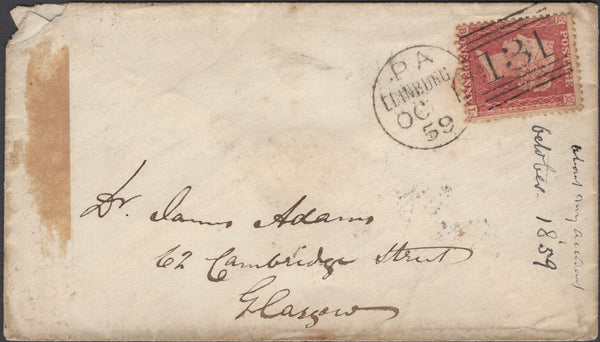 PA
EDINBURG
OC
59
131
Dr. James Adams
62 Cambridge Street
Glasgow
October 1859
about my account